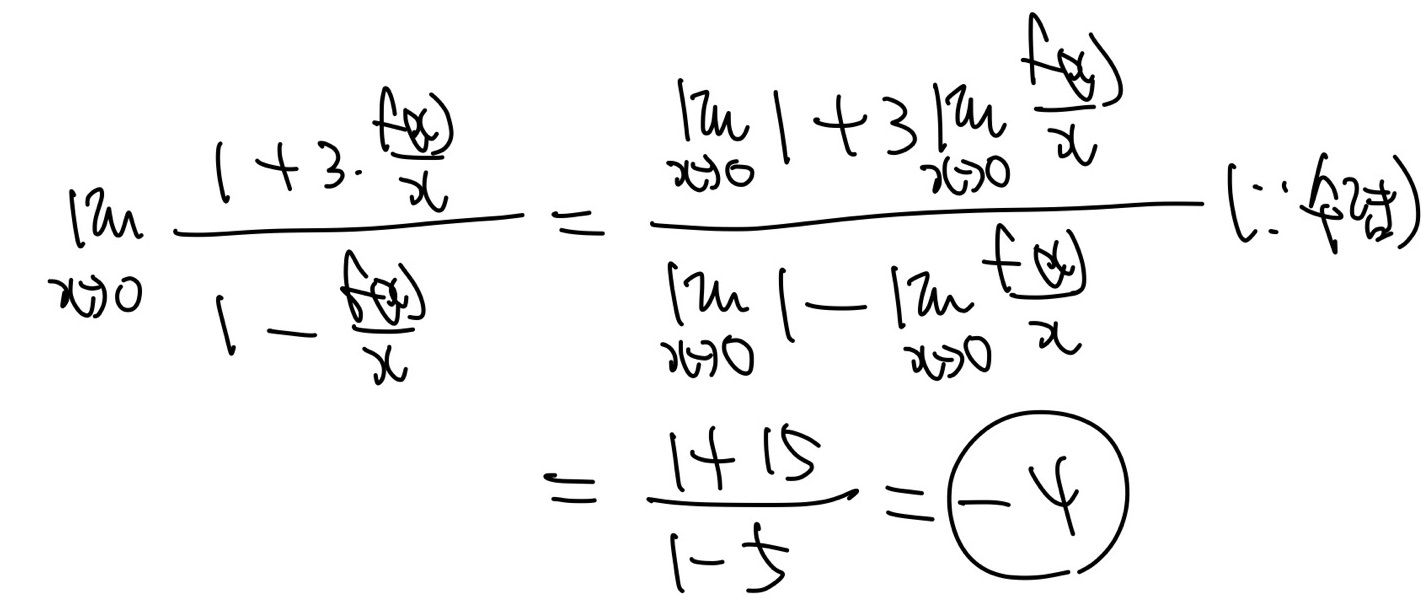 lim_{x→0} (1 + 3·f(x)/x)/(1 − f(x)/x) = (lim_{x→0} 1 + 3 lim_{x→0} f(x)/x)/(lim_{x→0} 1 − lim_{x→0} f(x)/x) (∵ 수렴)
= (1+15)/(1−5) = −4